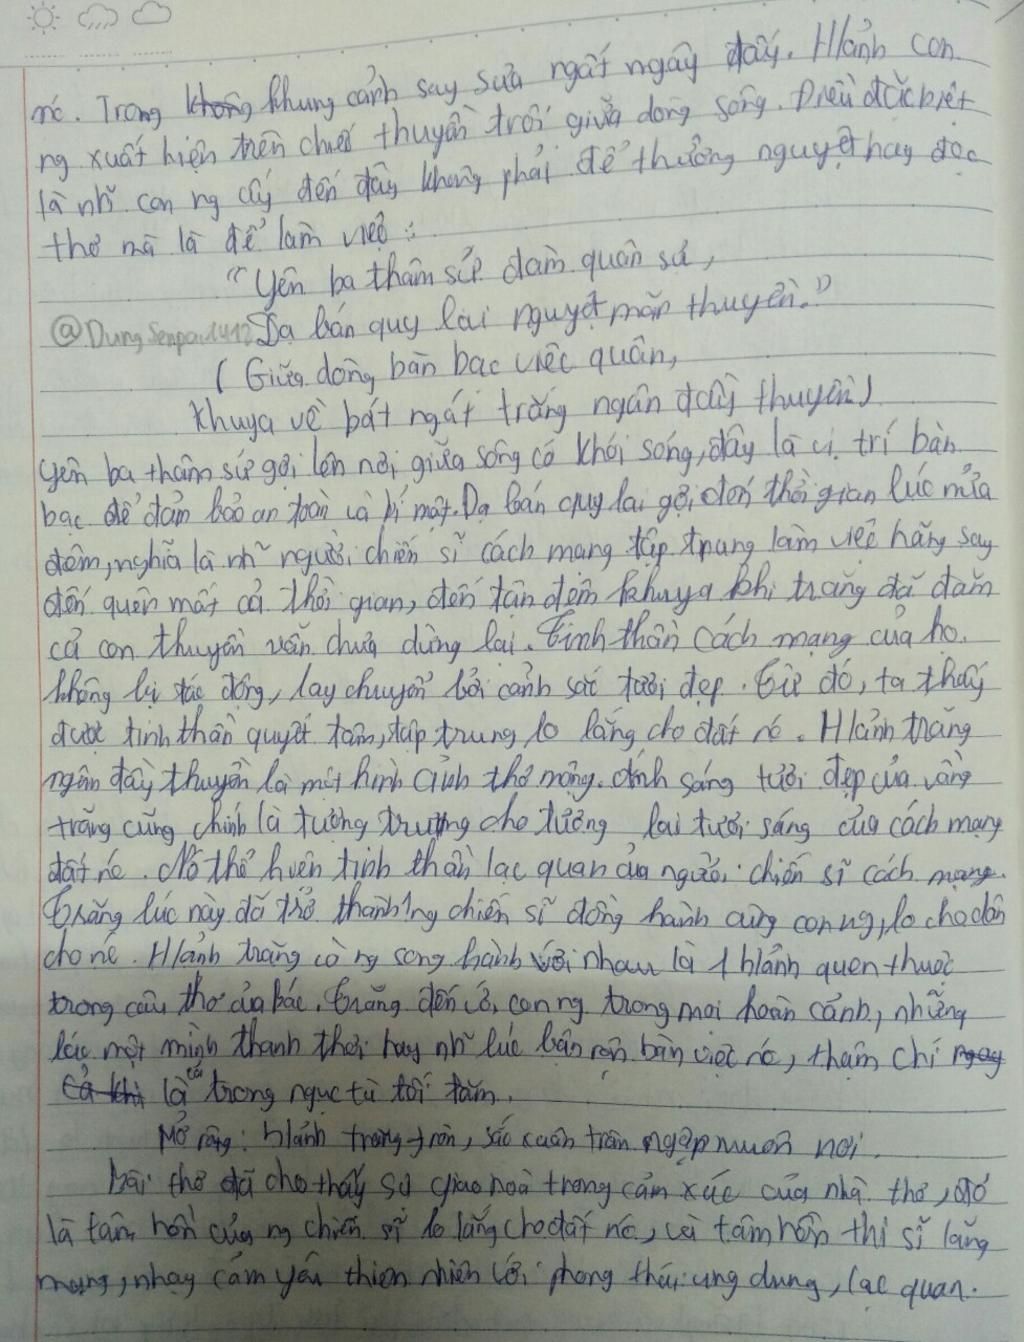 nc. Trong không khung cảnh say sưa ngất ngây đấy. H/ảnh con
ng xuất hiện trên chiếc thuyền trôi giữa dòng sông. Điều đặc biệt
là nh~ con ng ấy đến đây không phải để thưởng nguyệt hay đọc
thơ mà là để làm việc:
"Yên ba thâm sứ đàm quân sự,
@DungSenpai1412 Dạ bán quy lai nguyệt mãn thuyền."
(Giữa dòng bàn bạc việc quân,
Khuya về bát ngát trăng ngân đầy thuyền)
Yên ba thâm sứ gợi lên nơi giữa sông có khói sóng, đây là vị trí bàn
bạc để đảm bảo an toàn và bí mật. Dạ bán quy lai gợi đến thời gian lúc nửa
đêm, nghĩa là nh~ người chiến sĩ cách mạng tập trung làm việc hăng say
đến quên mất cả thời gian, đến tận đêm khuya khi trăng đã đẫm
cả con thuyền vẫn chưa dừng lại. Tinh thần cách mạng của họ
không bị tác động, lay chuyển bởi cảnh sắc tươi đẹp. Từ đó, ta thấy
được tinh thần quyết tâm, tập trung lo lắng cho đất nc. H/ảnh trăng
ngân đầy thuyền là một hình ảnh thơ mộng. Ánh sáng tươi đẹp của vầng
trăng cũng chính là tượng trưng cho tương lai tươi sáng của cách mạng
đất nc. Nó thể hiện tinh thần lạc quan của người chiến sĩ cách mạng.
Trăng lúc này đã trở thành 1 ng chiến sĩ đồng hành cùng con ng, lo cho dân
cho nc. H/ảnh trăng và ng song hành với nhau là 1 h/ảnh quen thuộc
trong câu thơ của bác. Trăng đến với con ng trong mọi hoàn cảnh, những
lúc một mình thảnh thơi hay nh~ lúc bận rộn bàn việc nc, thậm chí ngay
cả khi là cả trong ngục tù tối tăm.
Mở rộng: h/ảnh trăng tròn, sắc xuân tràn ngập muôn nơi.
bài thơ đã cho thấy sự giao hoà trong cảm xúc của nhà thơ, đó
là tâm hồn của ng chiến sĩ lo lắng cho đất nc, và tâm hồn thi sĩ lãng
mạng, nhạy cảm yêu thiên nhiên với phong thái ung dung, lạc quan.